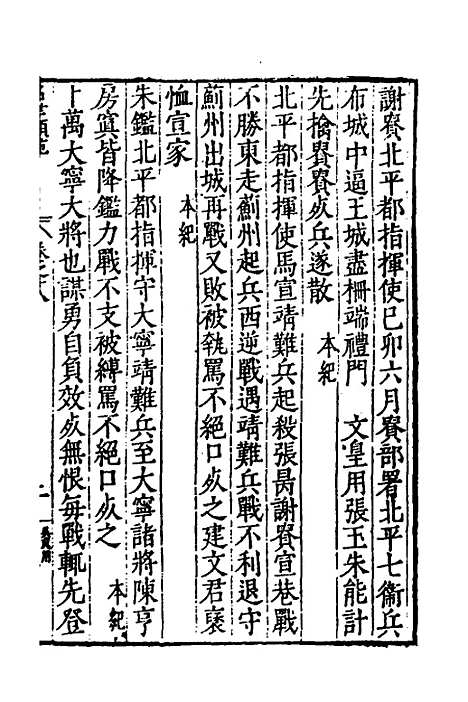 謝賡北平都指揮使已卯六月賡部署北平七衞兵
布城中逼王城盡柵端禮門　文皇用張玉朱能計
先擒賡賡死兵遂散　本紀
北平都指揮使馬宣靖難兵起殺張昺謝賡宣巷戰
不勝東走薊州起兵西逆戰遇靖難兵戰不利退守
薊州出城再戰又敗被執罵不絕口死之建文君褒
恤宣家　本紀
朱鑑北平都指揮守大寧靖難兵至大寧諸將陳亨
房寘皆降鑑力戰不支被縛罵不絕口死之　本紀
十萬大寧大將也謀勇自負效死無恨毎戰輒先登
卷之八